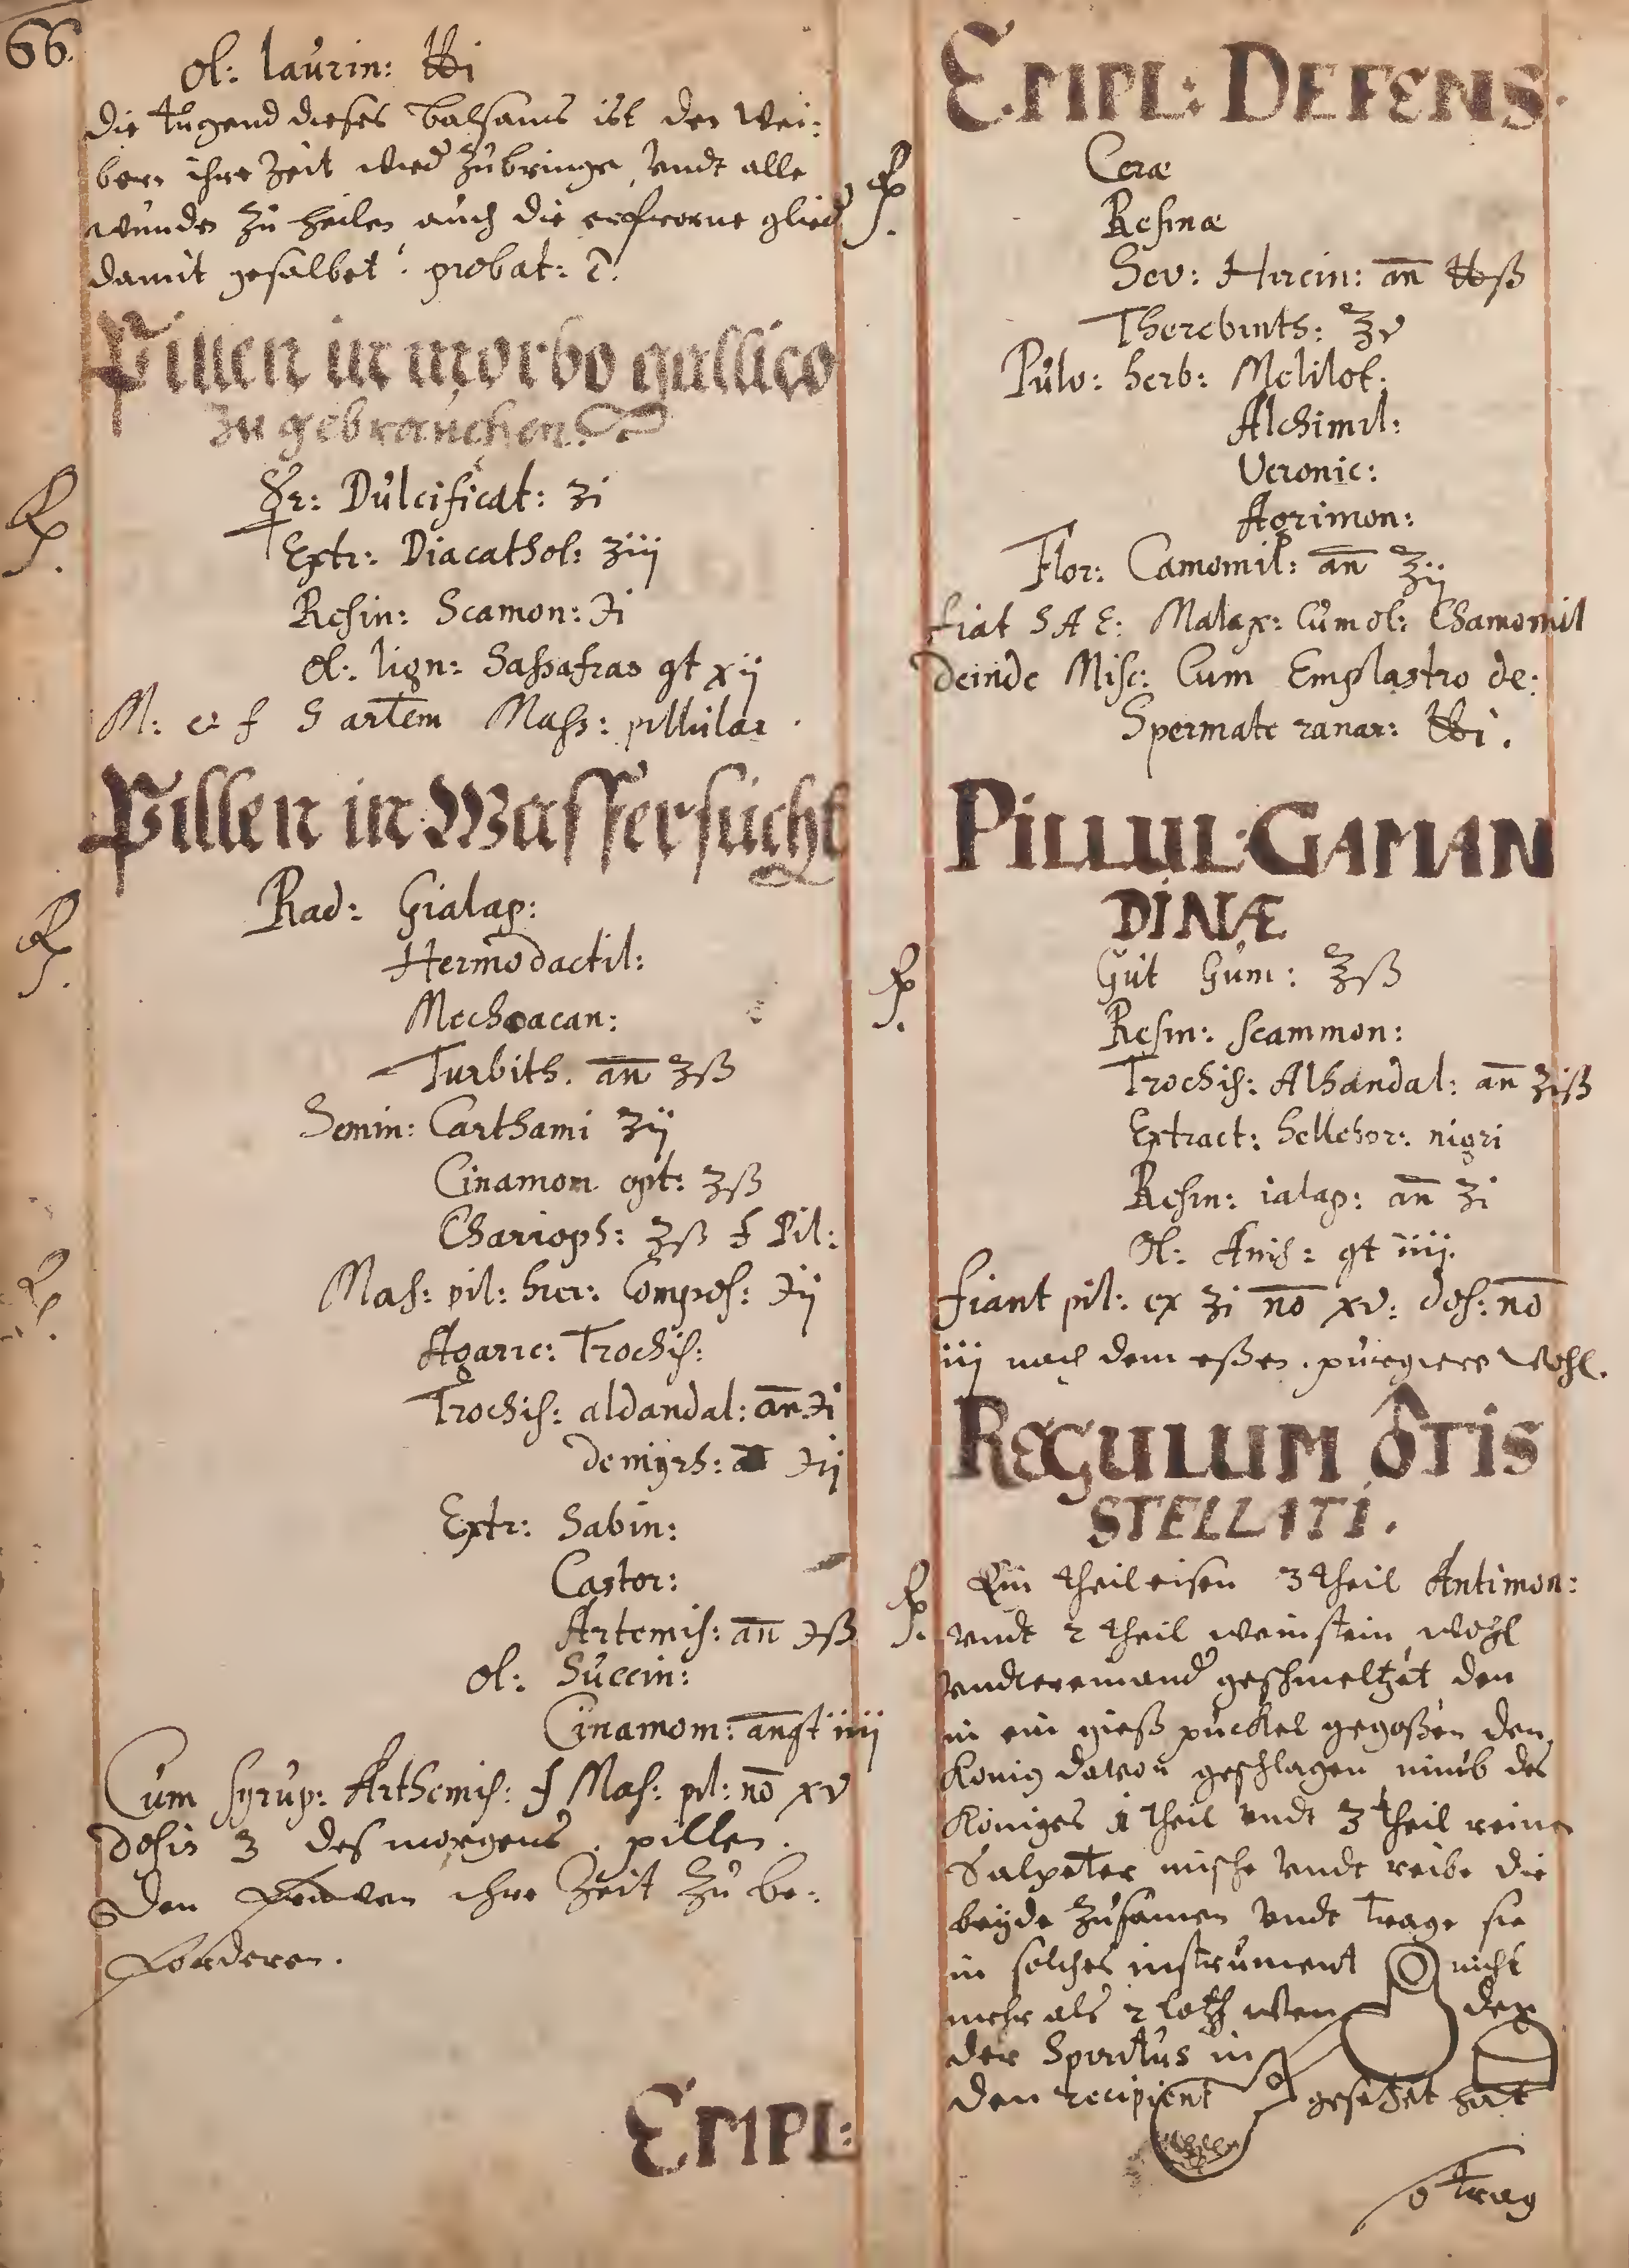 66.
Ol: laurin: ℔i
die tugend dieses balsams ist den Wei:
bern ihre Zeit wied zubringe, undt alle
wunden zu heilen auch die erfrorne glied
damit gesalbet. probat:
Pillen in morbo gallico
zu gebrauchen.
☿r: Dulcificat: ʒi
Extr: Diacathol: ʒiij
Resin: Scamon: ℈i
Ol: lign: Sassafras gt xij
M: et f S artem Mass: pillular.
Pillen in Wassersucht
℞. Rad: Gialap:
Hermodactil:
Mechoacan:
Turbith. an̄ ʒß
Semin: Carthami ʒij
Cinamom opt: ʒß
Charioph: ʒß f Pil:
Mas: pil: hier: Compos: ℈ij
Agaric: Trochis:
Trochis: aldandal: an̄ ℈i
de myrh: ℈ij
Extr: Sabin:
Castor:
Artemis: an̄ ℈ß
Ol: Succin:
Cinamom: an̄ gt iiij
Cum syrup: Arthemis: f Mas: pil: nō xv
dosis 3 des morgens. pillen.
Den Frauen ihre Zeit zu be:
forderen.
EMPL:
EMPL: DEFENS.
℞. Ceræ
Resinæ
Sev: Hircin: an̄ ℔ß
Therebinth: ℥v
Pulv: herb: Melilot:
Alchimil:
Veronic:
Agrimon:
Flor: Camomil: an̄ ℥ij
fiat S A E: Malax: Cum ol: Chamomil
deinde Misc: Cum Emplastro de:
Spermate ranar: ℔i.
PILLUL: GAMAN
DINÆ
℞. Gut Gum: ℥ß
Resin: scammon:
Trochis: Alhandal: an̄ ʒiß
Extract: hellebor: nigri
Resin: ialap: an̄ ʒi
Ol: Anis: gt iiij.
fiant pil: ex ʒi nō xv: dos: nō
iij nach dem eßen. purgiere wohl.
REGULUM ♁TIS
STELLATI.
℞. Ein theil eisen 3 theil Antimon:
undt 2 theil weinstein wohl
undtereinand geschmeltzet den
in ein gieß puckel gegoßen den
Konig davon geschlagen nimb des
Königes 1 theil undt 3 theil reine
Salpeter mische undt reibe die
beyde zusamen undt trage sie
in solches instrument nicht
mehr als 2 loth wen
der Spiritus in
den recipient gesetzet hat
so trag